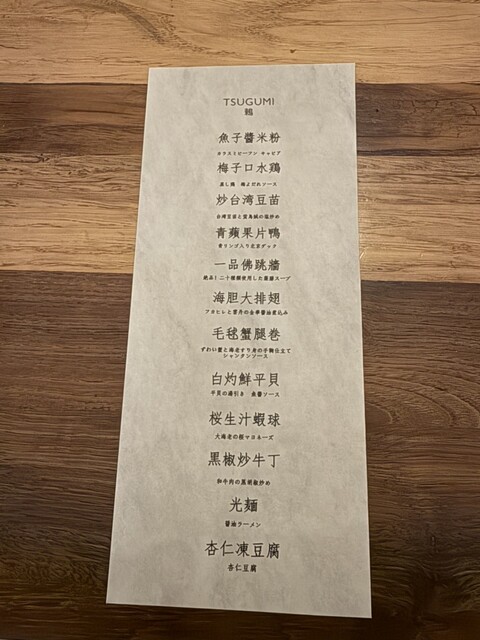 TSUGUMI
鶫
魚子醬米粉
カラスミビーフン キャビア
梅子口水鶏
蒸し鶏 梅よだれソース
炒台湾豆苗
台湾豆苗と宜蘭風の塩炒め
青蘋果片鴨
青リンゴ入り北京ダック
一品佛跳牆
絶品と二十種類使用した薬膳スープ
海胆大排翅
フカヒレと雲丹の金華醤油煮込み
毛毬蟹腿巻
ずわい蟹と海老すり身の手鞠仕立て
シャンタンソース
白灼鮮平貝
平貝の湯引き 魚醤ソース
桜生汁蝦球
大海老の桜マヨネーズ
黒椒炒牛丁
和牛肉の黒胡椒炒め
光麺
醤油ラーメン
杏仁凍豆腐
杏仁豆腐